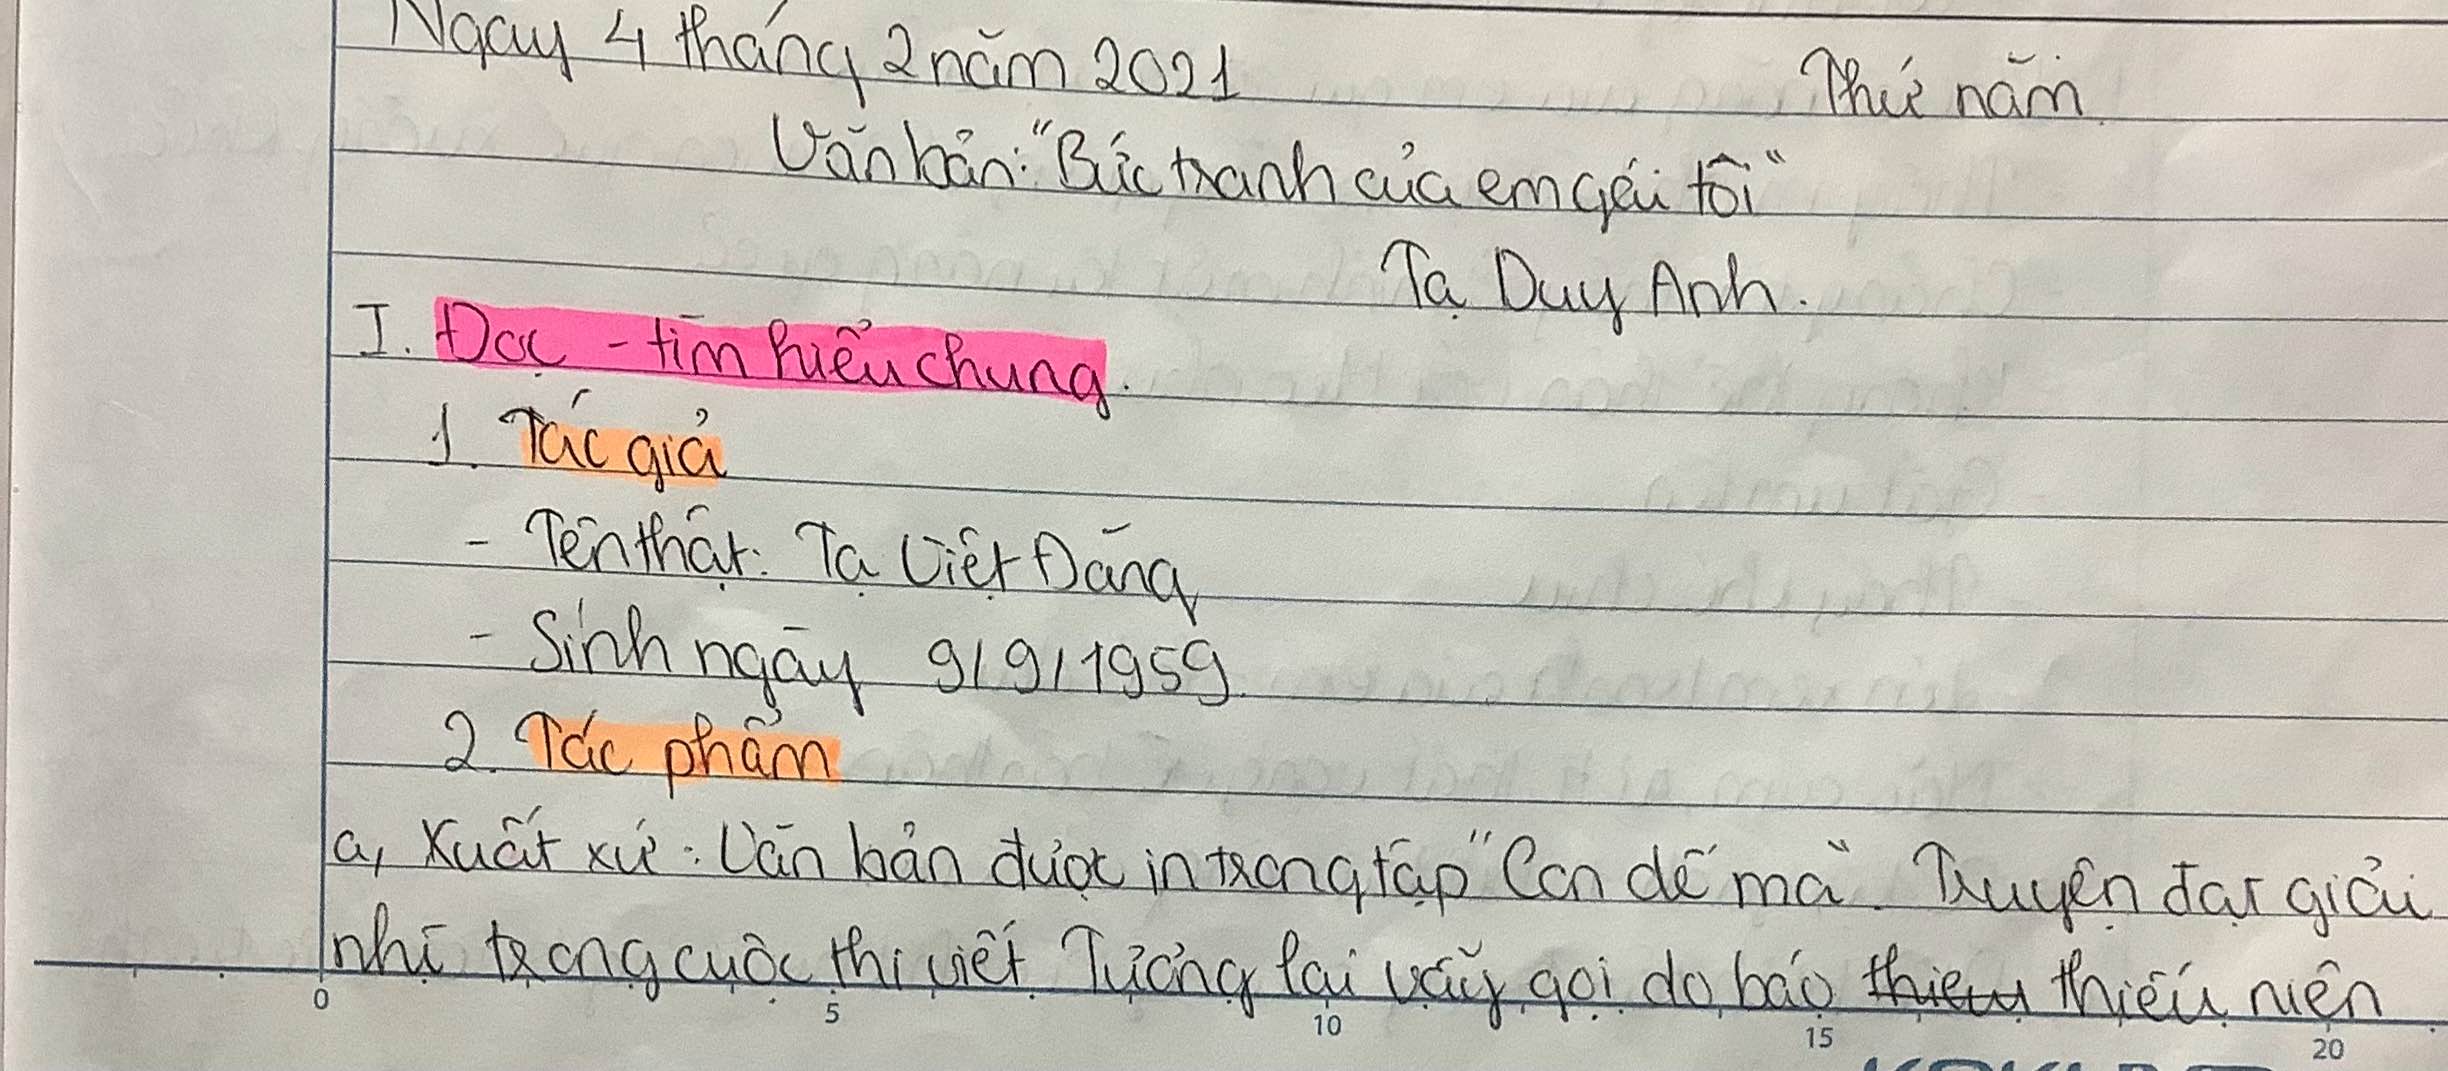 Ngày 4 tháng 2 năm 2021
Thứ năm
Văn bản: "Bức tranh của em gái tôi"
Tạ Duy Anh.
I. Đọc - tìm hiểu chung.
1. Tác giả
- Tên thật: Tạ Viết Đãng
- Sinh ngày 9/9/1959.
2. Tác phẩm
a, Xuất xứ: Văn bản được in trong tập "Con dế ma". Truyện đạt giải
nhì trong cuộc thi viết Tương lai vẫy gọi do báo thiếu niên
0 5 10 15 20